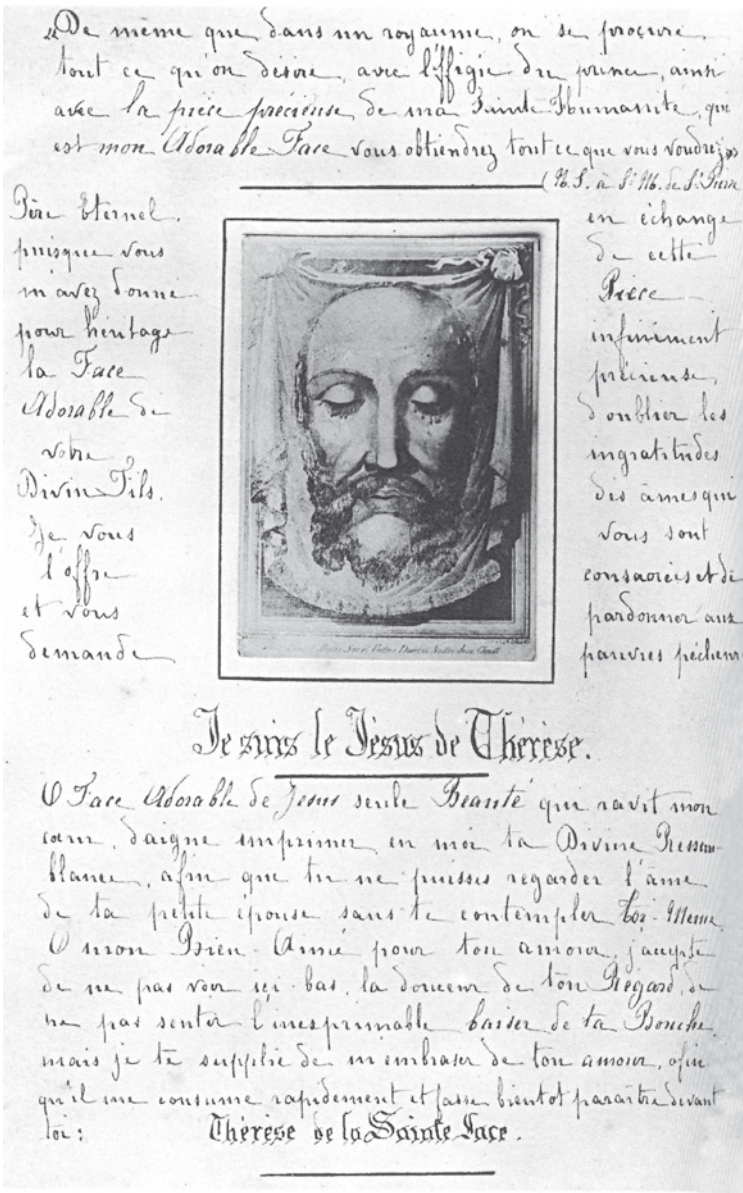 «De même que dans un royaume, on se procure
tout ce qu'on désire, avec l'éffigie du prince, ainsi
avec la pièce précieuse de ma Sainte Humanité, qui
est mon Adorable Face vous obtiendrez tout ce que vous voudrez»
(N.S. à Sr M. de St Pierre
Père Eternel.
puisque vous
m'avez donné
pour héritage
la Face
Adorable de
votre
Divin Fils.
Je vous
l'offre
et vous
demande
en échange
de cette
Pièce
infiniment
précieuse,
d'oublier les
ingratitudes
des âmes qui
vous sont
consacrées et de
pardonner aux
pauvres pécheurs
Je suis le Jésus de Thérèse.
O Face Adorable de Jésus seule Beauté qui ravit mon
cœur, daigne imprimer en moi ta Divine Ressem-
blance, afin que tu ne puisses regarder l'âme
de ta petite épouse sans te contempler Toi-Même.
O mon Bien-Aimé pour ton amour, j'accepte
de ne pas voir ici-bas, la douceur de ton Regard, de
ne pas sentir l'inexprimable baiser de ta Bouche,
mais je te supplie de m'embraser de ton amour, afin
qu'il me consume rapidement et fasse bientôt paraître devant
toi:
Thérèse de la Sainte Face.